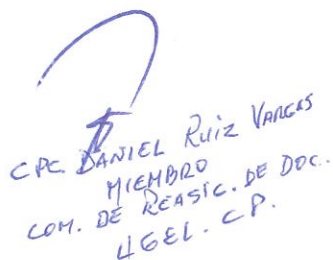 CPC. DANIEL RUIZ VARGAS
MIEMBRO
COM. DE REASIG. DE DOC.
UGEL. C.P.